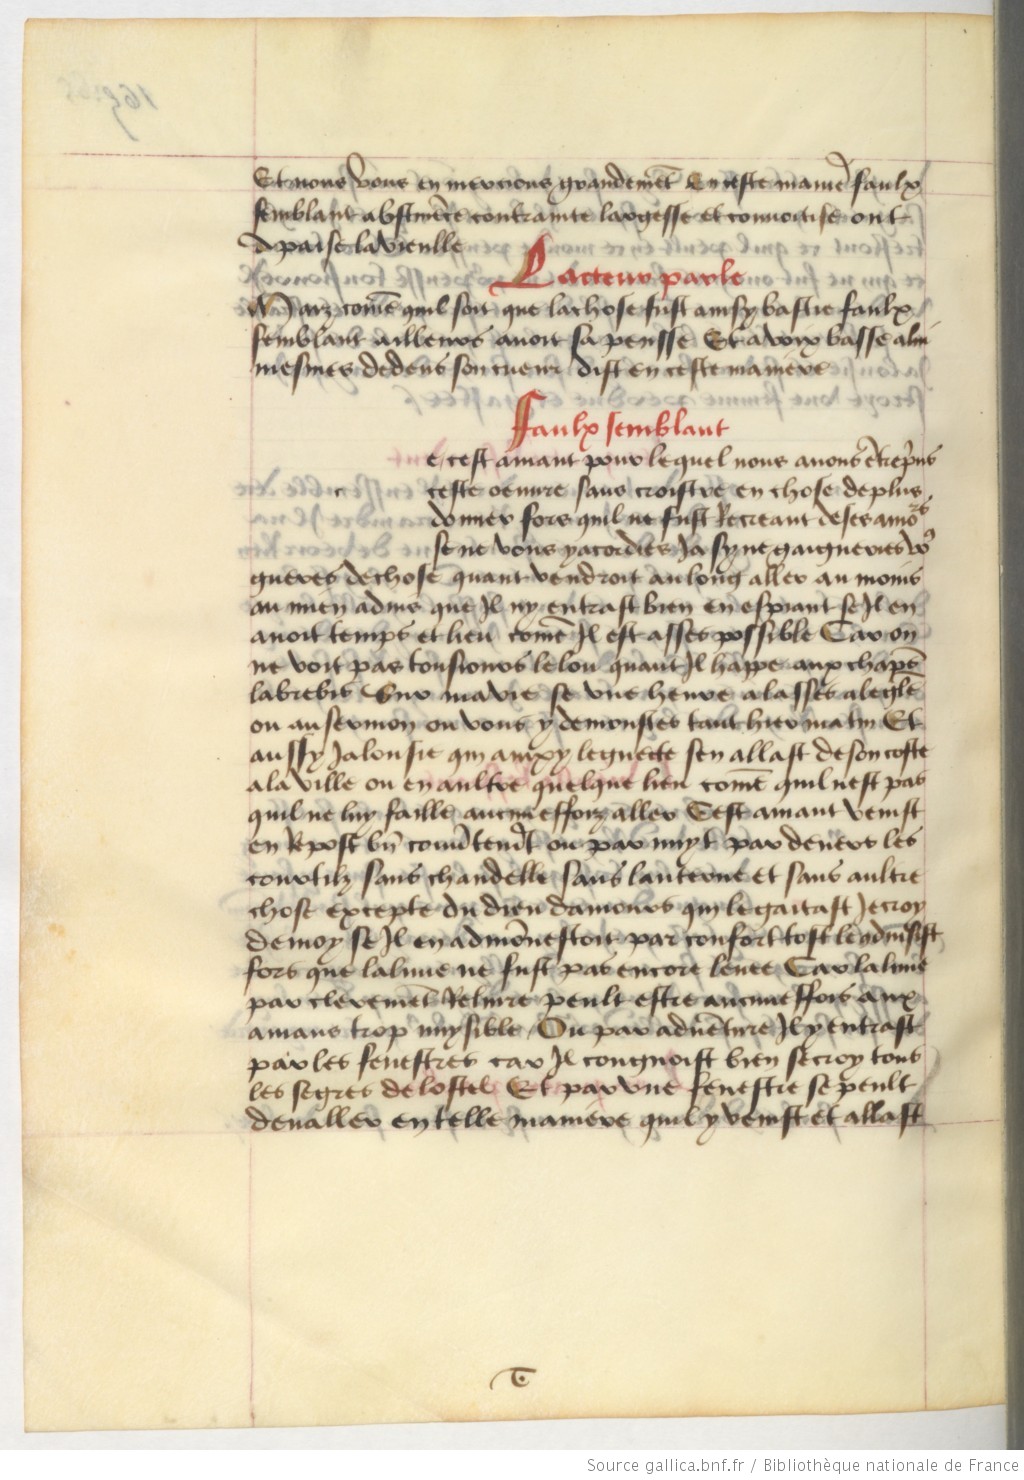 Et nous vous en mercions grandemẽt En ceste manieͬ faulx
semblant abstinẽce contrainte largesse et conuoitise ont
apaise la vieille
Lacteur parle
Marz comẽ quil soit que la chose fust ainsy bastie faulx
semblant ailleurs auoit sa pensse Et a voix basse a lui
mesmes dedens son cueur dist en ceste maniere
Faulx semblant
e cest amant pour lequel nous auons ẽtrepͥns
ceste oeuure sans croistre en chose de plus
donner fors quil ne fust Recreant de ses amoͬs
se ne vous y acordies Ja sy ne gaigneries voͬ
gueres de chose quant vendroit au long aller au moins
au mien aduis que Il ny entrast bien en espiant se Il en
auoit temps et lieu comẽ Il est asses possible Car on
ne voit pas tousiours le lou quant Il happe aux chãps
la brebis Sur ma vie se vne heure alasses a leglẽ
ou au sermon ou vous y demoustes tant hier matin Et
aussy Jalousie qui auxy le guecte sen allast de son coste
a la ville ou en aultre quelque lieu comẽ quil nest pas
quil ne luy faille aucuneffoiz aller Cest amant venist
en Repost ou par nuyt par deuers les
courtilz sans chandelle sans lanterne et sans aultre
chose excepte du dieu damours qui le gaitast Je croy
de moy se Il en admõnestoit par confort tost le admsist
fors que la lune ne fust pas encore leuee Car la lune
par cleremẽt Reluire peult estre aucuneffois aux
amans trop nuysible Ou par aduẽture Il y entrast
par les fenestres car Il congnoist bien se croy tous
les segres de lostel Et par vne fenestre se peult
deualler en telle maniere quil y venist et allast